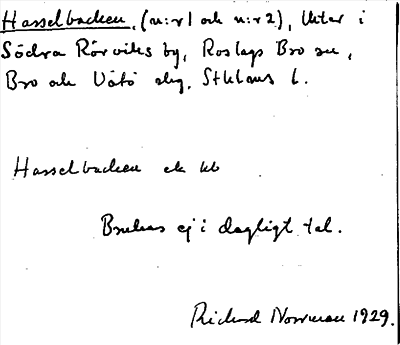 Hasselbacken, (n:r 1 och n:r 2), lhtar i
Södra Rörviks by, Roslags Bro sn,
Bro och Vätö skg, Sthlms l.
Hasselbacken ek kb
Brukas ej i dagligt tal.
Richard Norrman 1929.